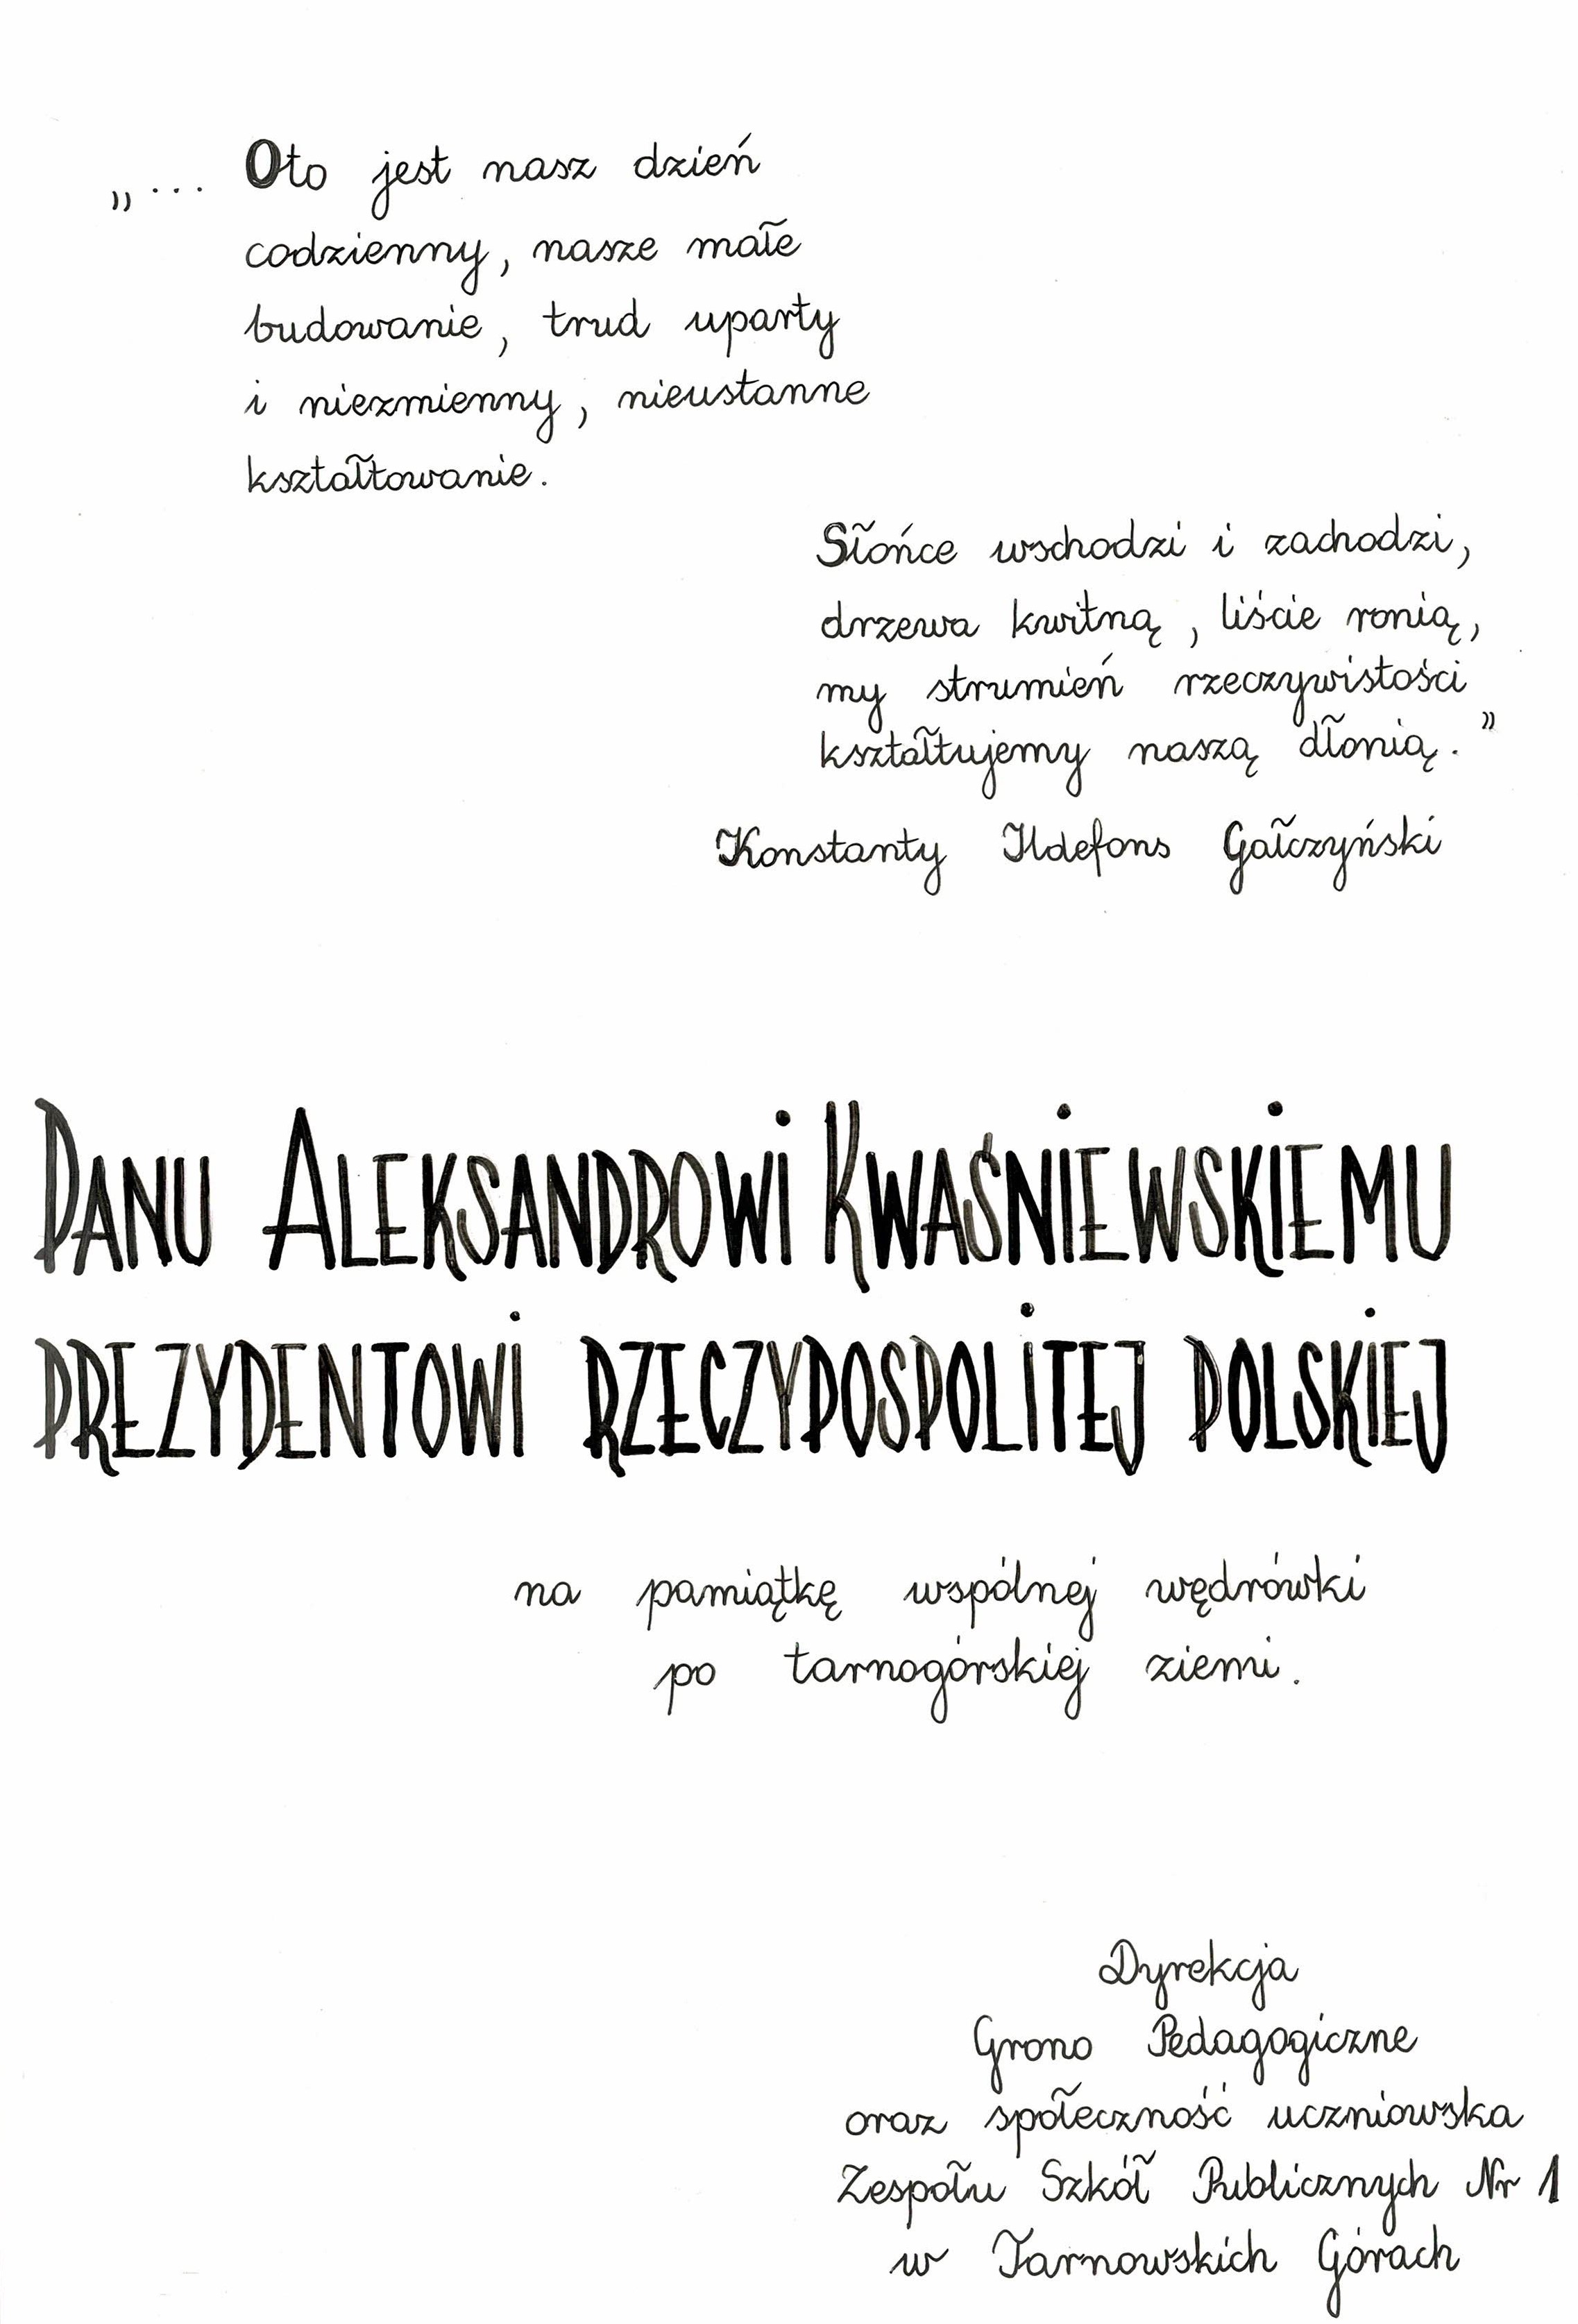 „... Oto jest nasz dzień
codzienny, nasze małe
budowanie, trud uparty
i niezmienny, nieustanne
kształtowanie.
Słońce wschodzi i zachodzi,
drzewa kwitną, liście ronią,
my strumień rzeczywistości
kształtujemy naszą dłonią.”
Konstanty Ildefons Gałczyński
PANU ALEKSANDROWI KWAŚNIEWSKIEMU
PREZYDENTOWI RZECZYPOSPOLITEJ POLSKIEJ
na pamiątkę wspólnej wędrówki
po tarnogórskiej ziemi.
Dyrekcja
Grono Pedagogiczne
oraz społeczność uczniowska
Zespołu Szkół Publicznych Nr 1
w Tarnowskich Górach